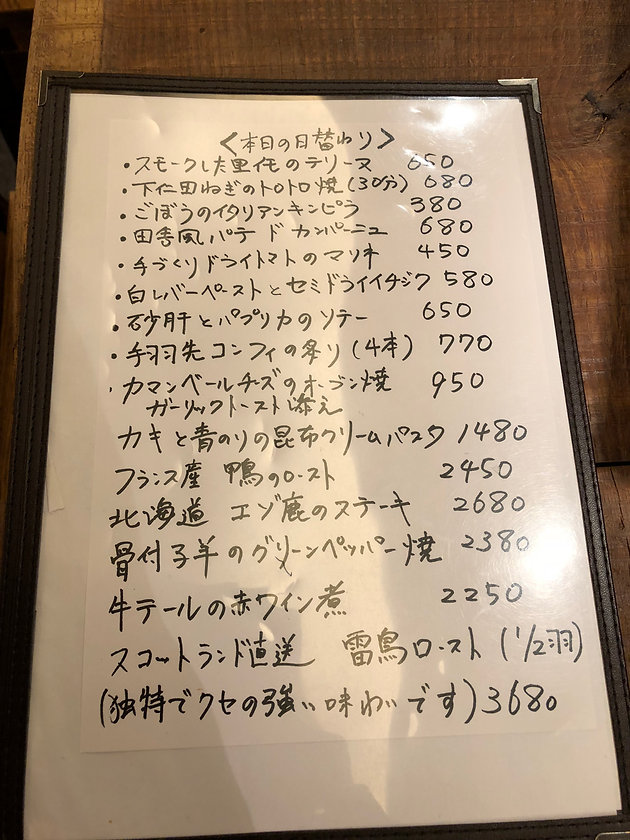 <本日の日替わり>
・スモークした里芋のテリーヌ 650
・下仁田ねぎのトロトロ焼(30分) 680
・ごぼうのイタリアンキンピラ 380
・田舎風パテ ド カンパーニュ 680
・手づくりドライトマトのマリネ 450
・白レバーペーストとセミドライイチジク 580
・砂肝とパプリカのソテー 650
・手羽先コンフィの炙り(4本) 770
・カマンベールチーズのオーブン焼 950
ガーリックトースト添え
カキと青のりの昆布クリームパスタ 1480
フランス産 鴨のロースト 2450
北海道 エゾ鹿のステーキ 2680
骨付子羊のグリーンペッパー焼 2380
牛テールの赤ワイン煮 2250
スコットランド直送 雷鳥ロースト(1/2羽)
(独特でクセの強い味わいです) 3680